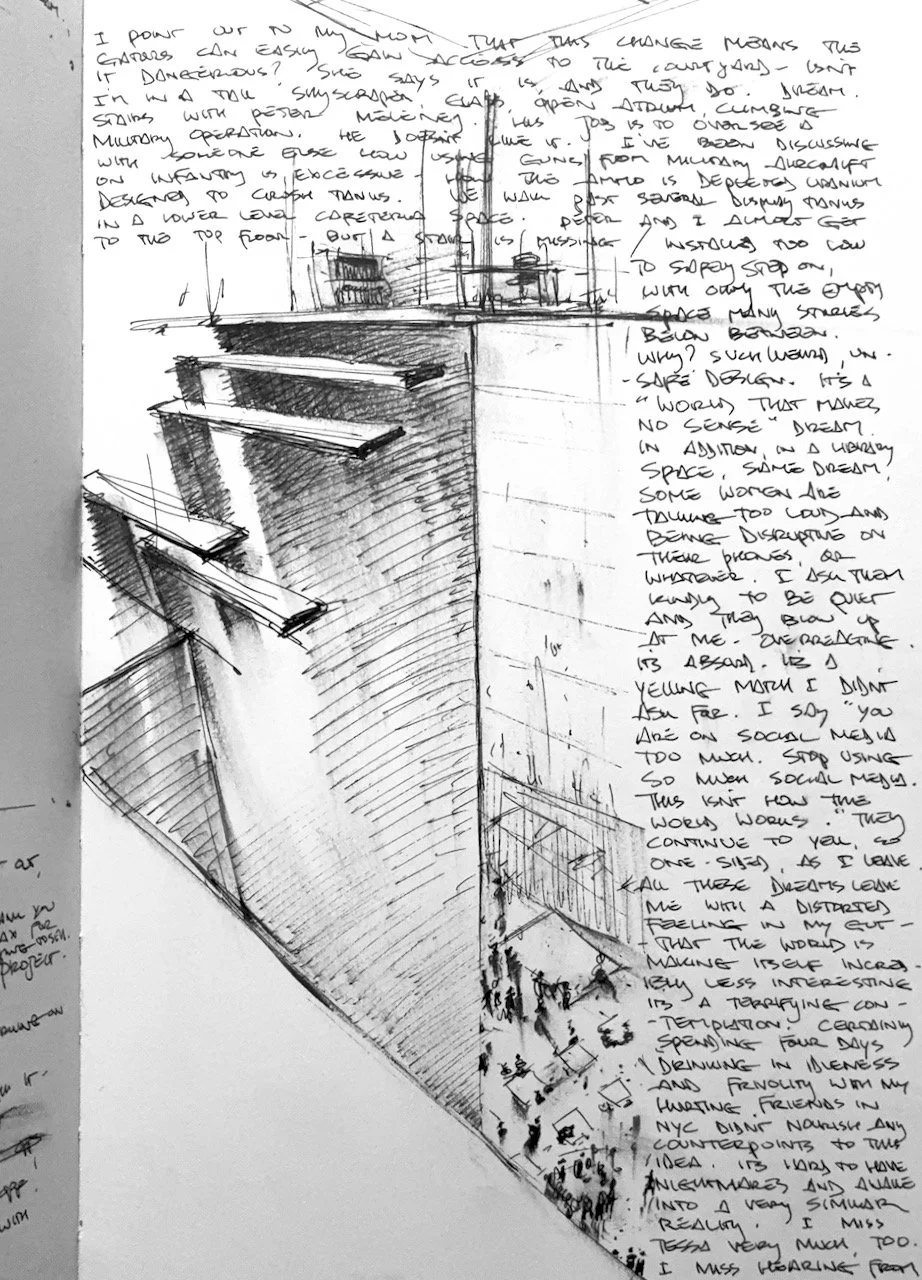 I POINT OUT TO MY MOM THAT THIS CHANGE MEANS THE
GATORS CAN EASILY GAIN ACCESS TO THE COURTYARD - ISN'T
IT DANGEROUS? SHE SAYS IT IS, AND THEY DO. DREAM.
I'M IN A TALL SKYSCRAPER, GLASS OPEN ATRIUM, CLIMBING
STAIRS WITH PETER . HIS JOB IS TO OVERSEE A
MILITARY OPERATION. HE DOESN'T LIKE IT. I'VE BEEN DISCUSSING
WITH SOMEONE ELSE HOW USING GUNS FROM MILITARY AIRCRAFT
ON INFANTRY IS EXCESSIVE - HOW THE AMMO IS DEPLETED URANIUM
DESIGNED TO CRUSH TANKS. WE WALK PAST SEVERAL DISPLAY TANKS
IN A LOWER LEVEL CAFETERIA SPACE. PETER AND I ALMOST GET
TO THE TOP FLOOR - BUT A STAIR IS MISSING
/ INSTALLED TOO LOW
TO SAFELY STEP ON,
WITH ONLY THE EMPTY
SPACE MANY STORIES
BELOW BETWEEN.
WHY? SUCH WEIRD, UN-
-SAFE DESIGN. IT'S A
"WORLD THAT MAKES
NO SENSE" DREAM.
IN ADDITION, IN A LIBRARY
SPACE, SAME DREAM,
SOME WOMEN ARE
TALKING TOO LOUD AND
BEING DISRUPTIVE ON
THEIR PHONES, OR
WHATEVER. I ASK THEM
KINDLY TO BE QUIET
AND THEY BLOW UP
AT ME. OVERREACTING.
IT'S ABSURD. IT'S A
YELLING MATCH I DIDN'T
ASK FOR. I SAY "YOU
ARE ON SOCIAL MEDIA
TOO MUCH. STOP USING
SO MUCH SOCIAL MEDIA.
THIS ISN'T HOW THE
WORLD WORKS." THEY
CONTINUE TO YELL, SO
ONE-SIDED, AS I LEAVE
ALL THESE DREAMS LEAVE
ME WITH A DISTORTED
FEELING IN MY GUT -
- THAT THE WORLD IS
MAKING ITSELF INCRED-
IBLY LESS INTERESTING
IT'S A TERRIFYING CON-
-TEMPLATION. CERTAINLY
SPENDING FOUR DAYS
DRINKING IN IDLENESS
AND FRIVOLITY WITH MY
HURTING FRIENDS IN
NYC DIDN'T NOURISH ANY
COUNTERPOINTS TO THIS
IDEA. IT'S HARD TO HAVE
NIGHTMARES AND AWAKE
INTO A VERY SIMILAR
REALITY. I MISS
TESSA VERY MUCH, TOO.
I MISS HEARING FROM
OUT,
YOU
FOR
PROJECT.
ON
IT-
WITH